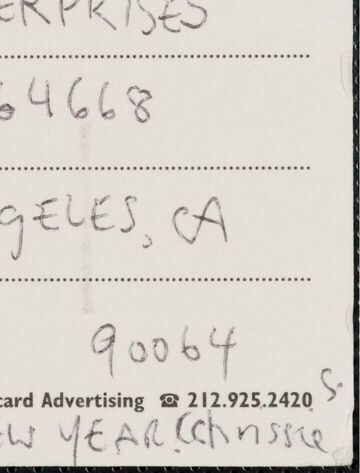 ERPRISES
64668
GELES, CA
90064
card Advertising ☎ 212.925.2420
S.
EW YEAR!